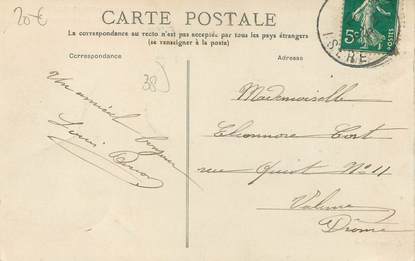 20€
CARTE POSTALE
La correspondance au recto n'est pas acceptée par tous les pays étrangers
(se renseigner à la poste)
Correspondance
Adresse
ISERE
5c
POSTES
38
Un amical bonjour
Louis
Mademoiselle
Eléonnore Cost
rue No 11
Valence
Drome